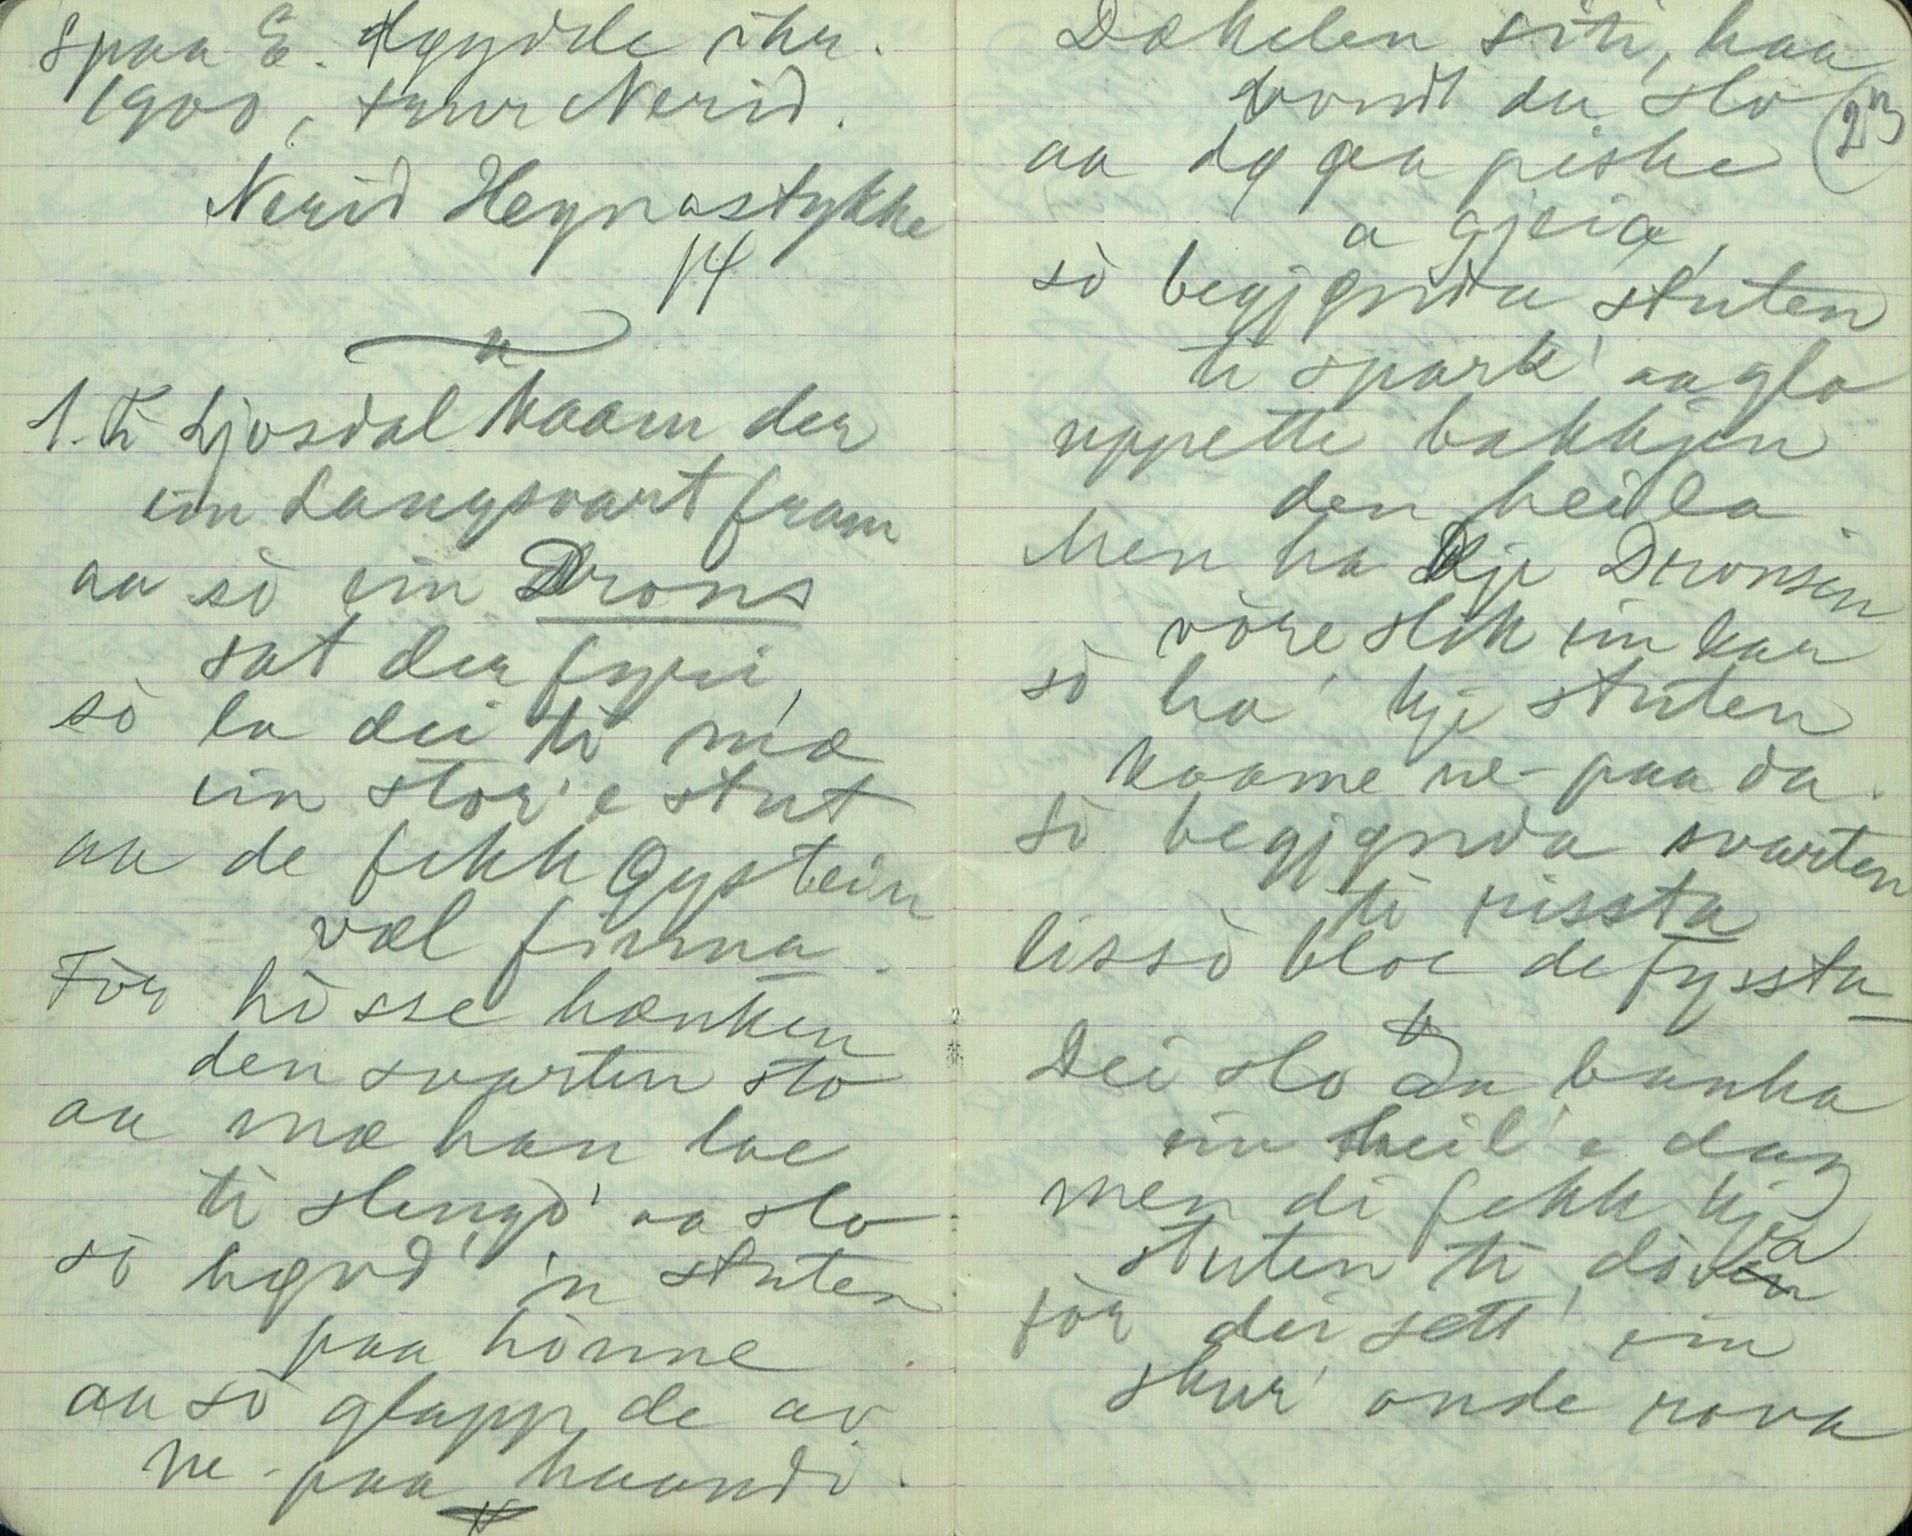 spaa E. dgydde ikr.
1900, fyrr Nerid.
Nerid Heynastykke
14
1. Ti Ljosdal kaam der
ein Langsvart fram
aa sò ein Drons
sat der fyri,
sò la dei ti mæ
ein stor'e stut
aa de fekk Øystein
væl finna.
För hòsse hænken
den svarten sto
aa mæ han lae
ti slengd' aa slo
sò hqvd' 'n stuten
paa hònne
aa sò glapp de av
ne-paa haandò.
Dækelen siti, kaa
vondt du slo
23
aa dq qa piske
a gjeiæ,
sò begjqnda stuten
ti spark' aa glo
uppette bakkjen
den heila.
Men ha kje Dronsen
vòre slik ein kar
sò ha' kje stuten
kaame ne-paa da.
Sò begjqnda svarten
ti rissta
lissò bloe de fyssta
Dei slo aa banka
ein heil'e dag
men di fekk kje
stuten ti döva
för dei sett' ein
skur' onde rova